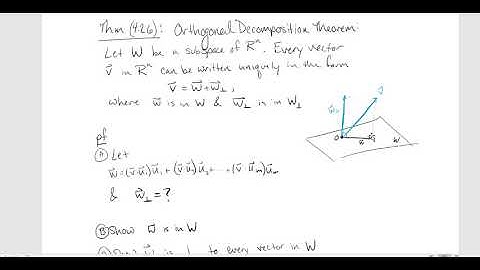 Thm (4.26): Orthogonal Decomposition Theorem:
Let W be a subspace of ℝⁿ. Every vector
v⃗ in ℝⁿ can be written uniquely in the form
v⃗ = w⃗ + w⃗⊥,
where w⃗ is in W & w⃗⊥ is in W⊥
pf
Ⓐ Let
w⃗ = (v⃗·u⃗₁)u⃗₁ + (v⃗·u⃗₂)u⃗₂ + ... + (v⃗·u⃗ₘ)u⃗ₘ
& w⃗⊥ = ?
Ⓑ Show w⃗ is in W
is ⊥ to every vector in W
w⃗⊥
v⃗
O
w⃗
W